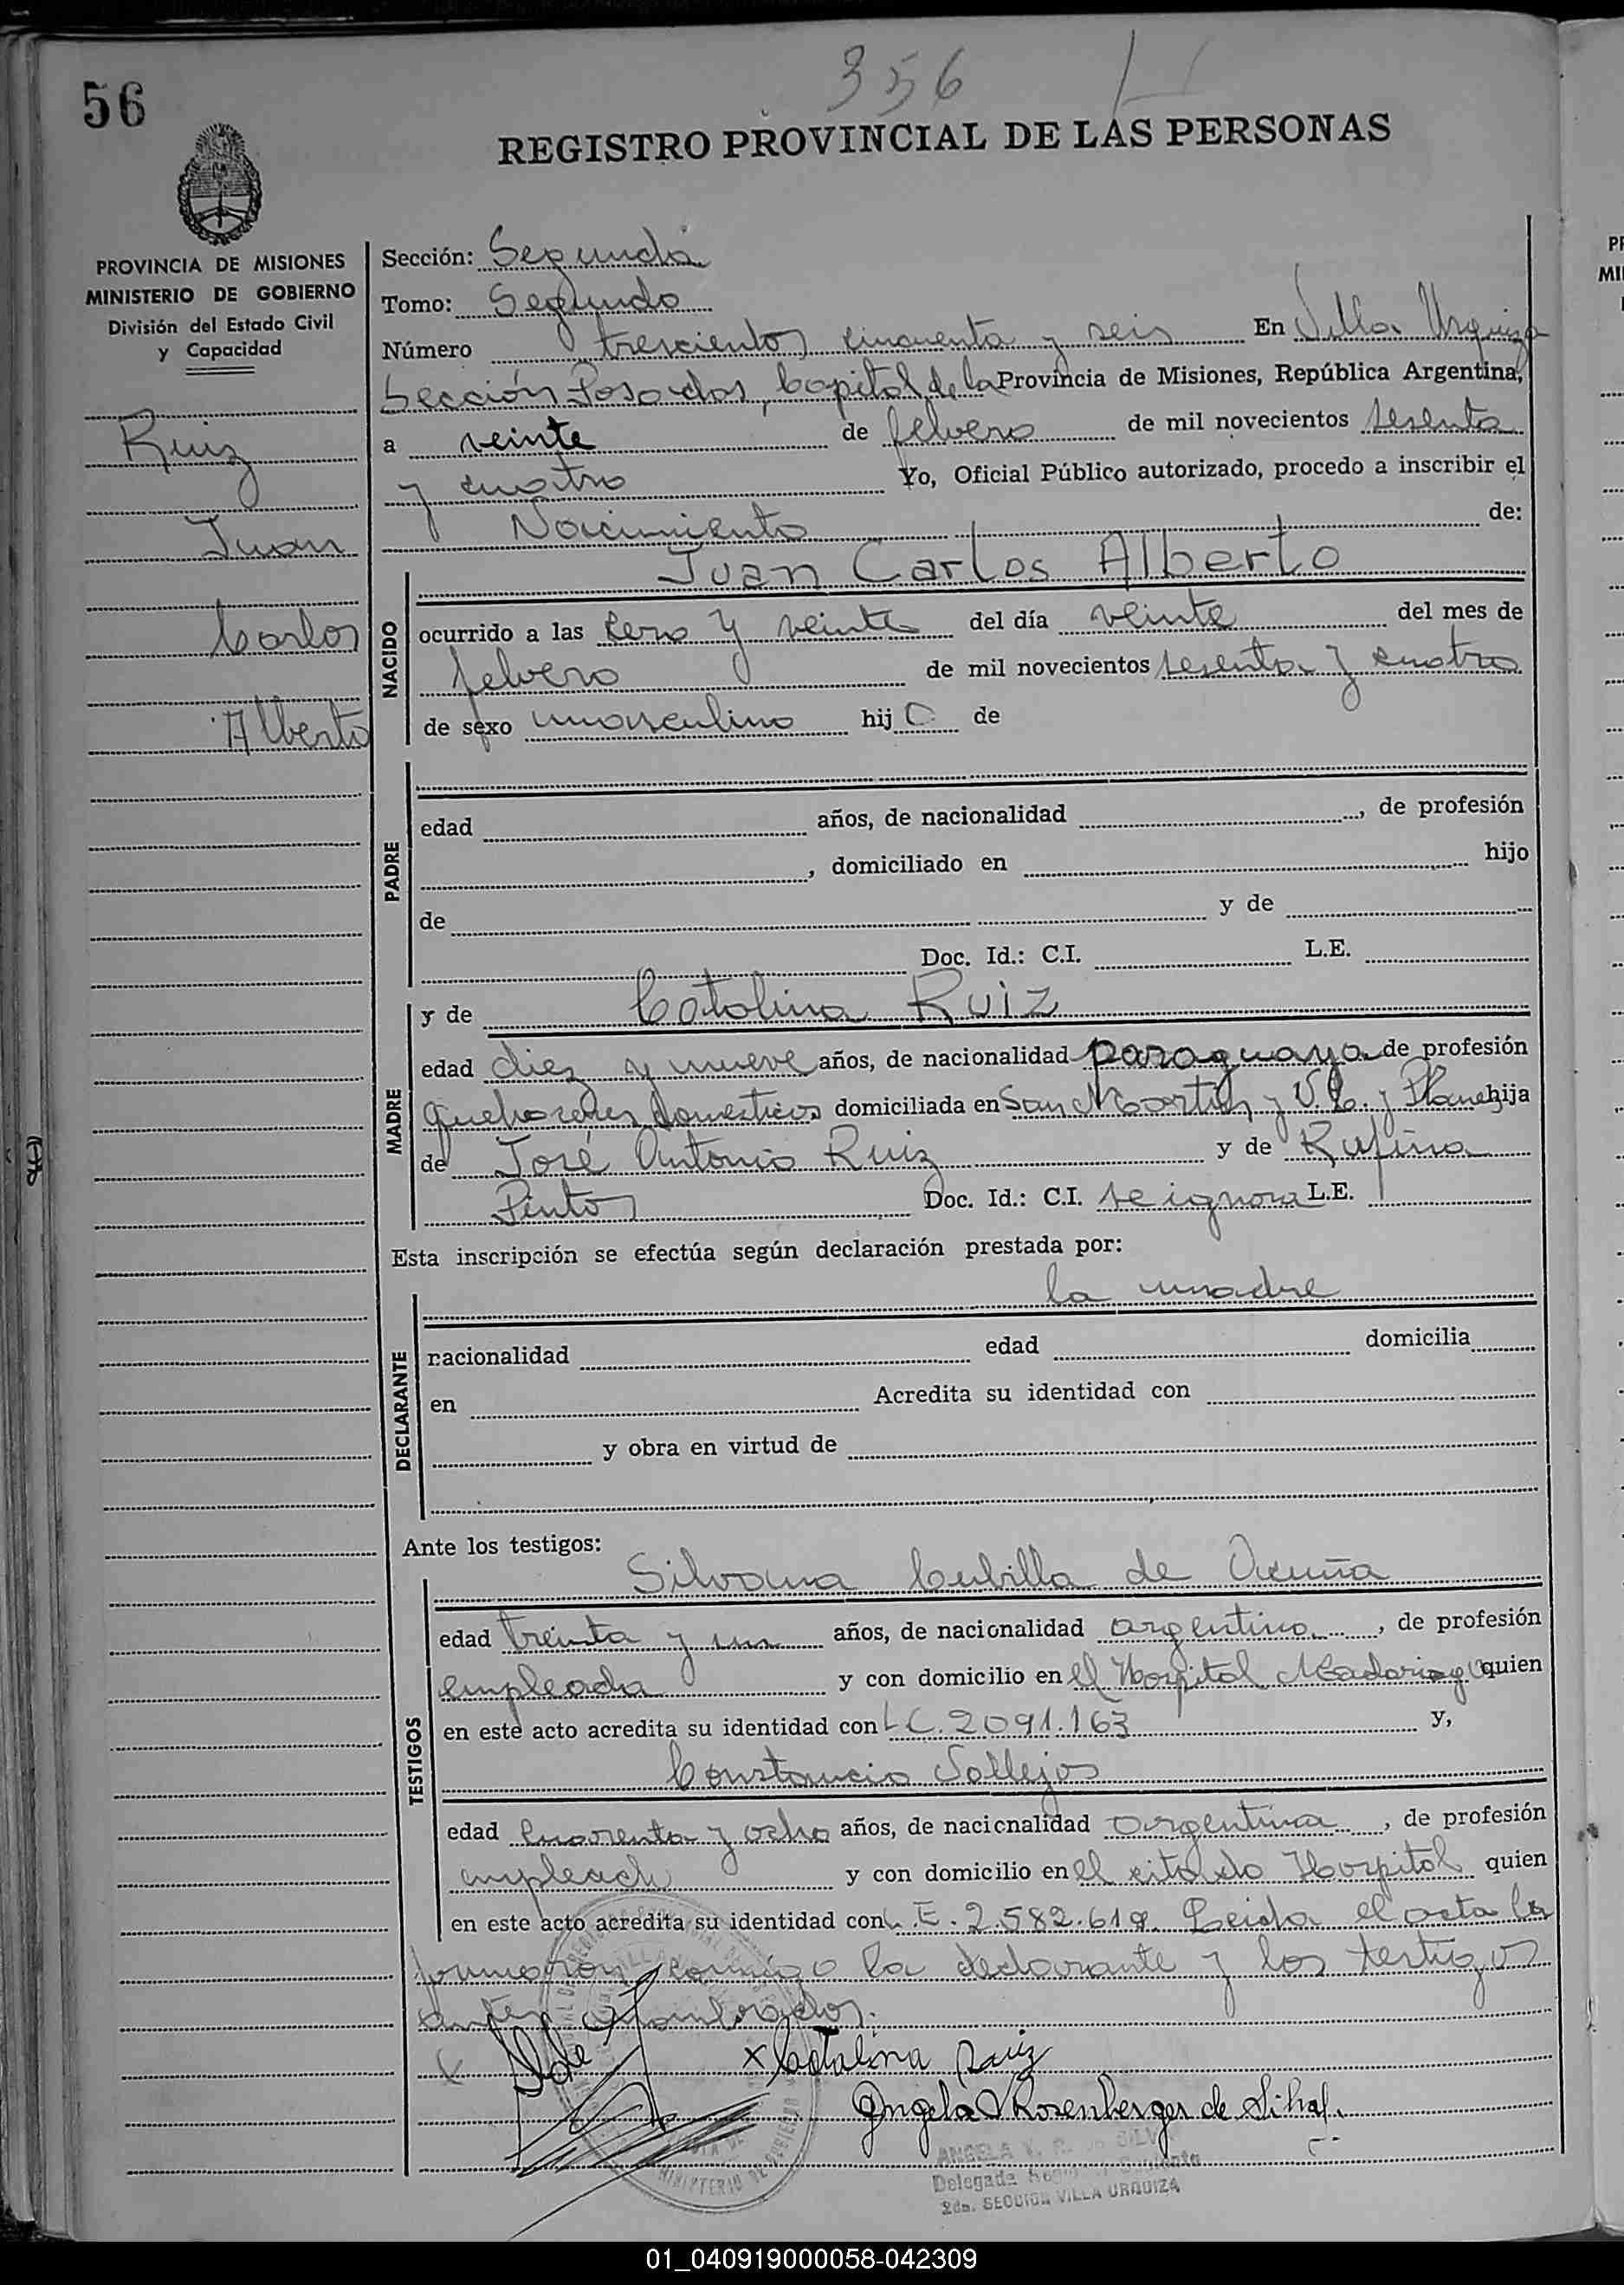 356
56
REGISTRO PROVINCIAL DE LAS PERSONAS
PROVINCIA DE MISIONES
MINISTERIO DE GOBIERNO
División del Estado Civil
y Capacidad
Ruiz
Juan
Carlos
Alberto
Sección: Segunda
Tomo: Segundo
Número trescientos cincuenta y seis En Villa Urquiza
Sección Posadas, Capital de la Provincia de Misiones, República Argentina,
a veinte de febrero de mil novecientos sesenta
y cuatro Yo, Oficial Público autorizado, procedo a inscribir el
Nacimiento de:
Juan Carlos Alberto
NACIDO
ocurrido a las cero y veinte del día veinte del mes de
febrero de mil novecientos sesenta y cuatro
de sexo masculino hijo de
PADRE
edad años, de nacionalidad , de profesión
, domiciliado en hijo
de y de
Doc. Id.: C.I. L.E.
MADRE
y de Catalina Ruiz
edad diez y nueve años, de nacionalidad paraguaya de profesión
quehaceres domesticos domiciliada en San Martin y V. L. y Planes hija
de José Antonio Ruiz y de Rufina
Pinto Doc. Id.: C.I. se ignora L.E.
Esta inscripción se efectúa según declaración prestada por:
la madre
DECLARANTE
nacionalidad edad domicilia
en Acredita su identidad con
y obra en virtud de
Ante los testigos:
Silvana Cubilla de Acuña
TESTIGOS
edad treinta y un años, de nacionalidad argentina , de profesión
empleada y con domicilio en el Hospital Madariaga quien
en este acto acredita su identidad con L C. 2091.163 y,
Constancio Vallejos
edad cuarenta y ocho años, de nacionalidad argentina , de profesión
empleado y con domicilio en el citado Hospital quien
en este acto acredita su identidad con L. E. 2.582.619. Leida el acta la
firmaron conmigo la declarante y los testigos
antes nombrados.
x Catalina Ruiz
Angela Rosenberger de Silva
ANGELA V. R. DE SILVA
Delegada
2da. SECCION VILLA URQUIZA
01_040919000058-042309